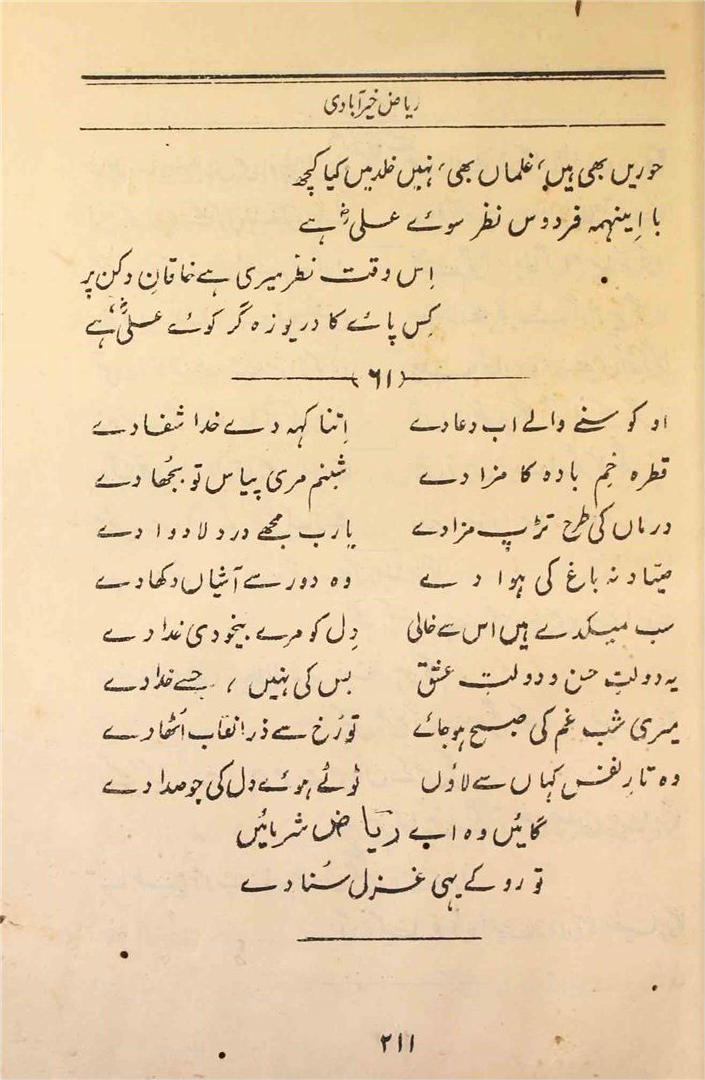 ریاض خیرآبادی
حوریں بھی ہیں، غلماں بھی، نہیں خلد میں کیا کچھ
با اینہمہ فردوس نظر سوئے علیؓ ہے
اِس وقت نظر میری ہے خاقانِ دکن پر
کِس پائے کا دریوزہ گر کوئے علیؓ، ہے
(٦١)
او کوسنے والے اب دعا دے اِتنا کہہ دے خدا شفا دے
قطرہ خمِ بادہ کا مزا دے شبنم مری پیاس تو بجُھا دے
درماں کی طرح تڑپ مزا دے یارب مجھے درد لا دوا دے
صیّاد نہ باغ کی ہوا دے وہ دور سے آشیاں دکھا دے
سب میکدے ہیں اس سے خالی دِل کو مرے بیخودی خدا دے
یہ دولتِ حسن و دولتِ عشق بس کی نہیں، جسے خدا دے
میری شب غم کی صبح ہو جائے تو رُخ سے ذرا نقاب اُٹھا دے
وہ تارِ نفس کہاں سے لاؤں ٹوٹے ہوئے دل کی جو صدا دے
گائیں وہ اب ریاض شرمائیں
تو رو کے یہی غزل سُنا دے
٢١١